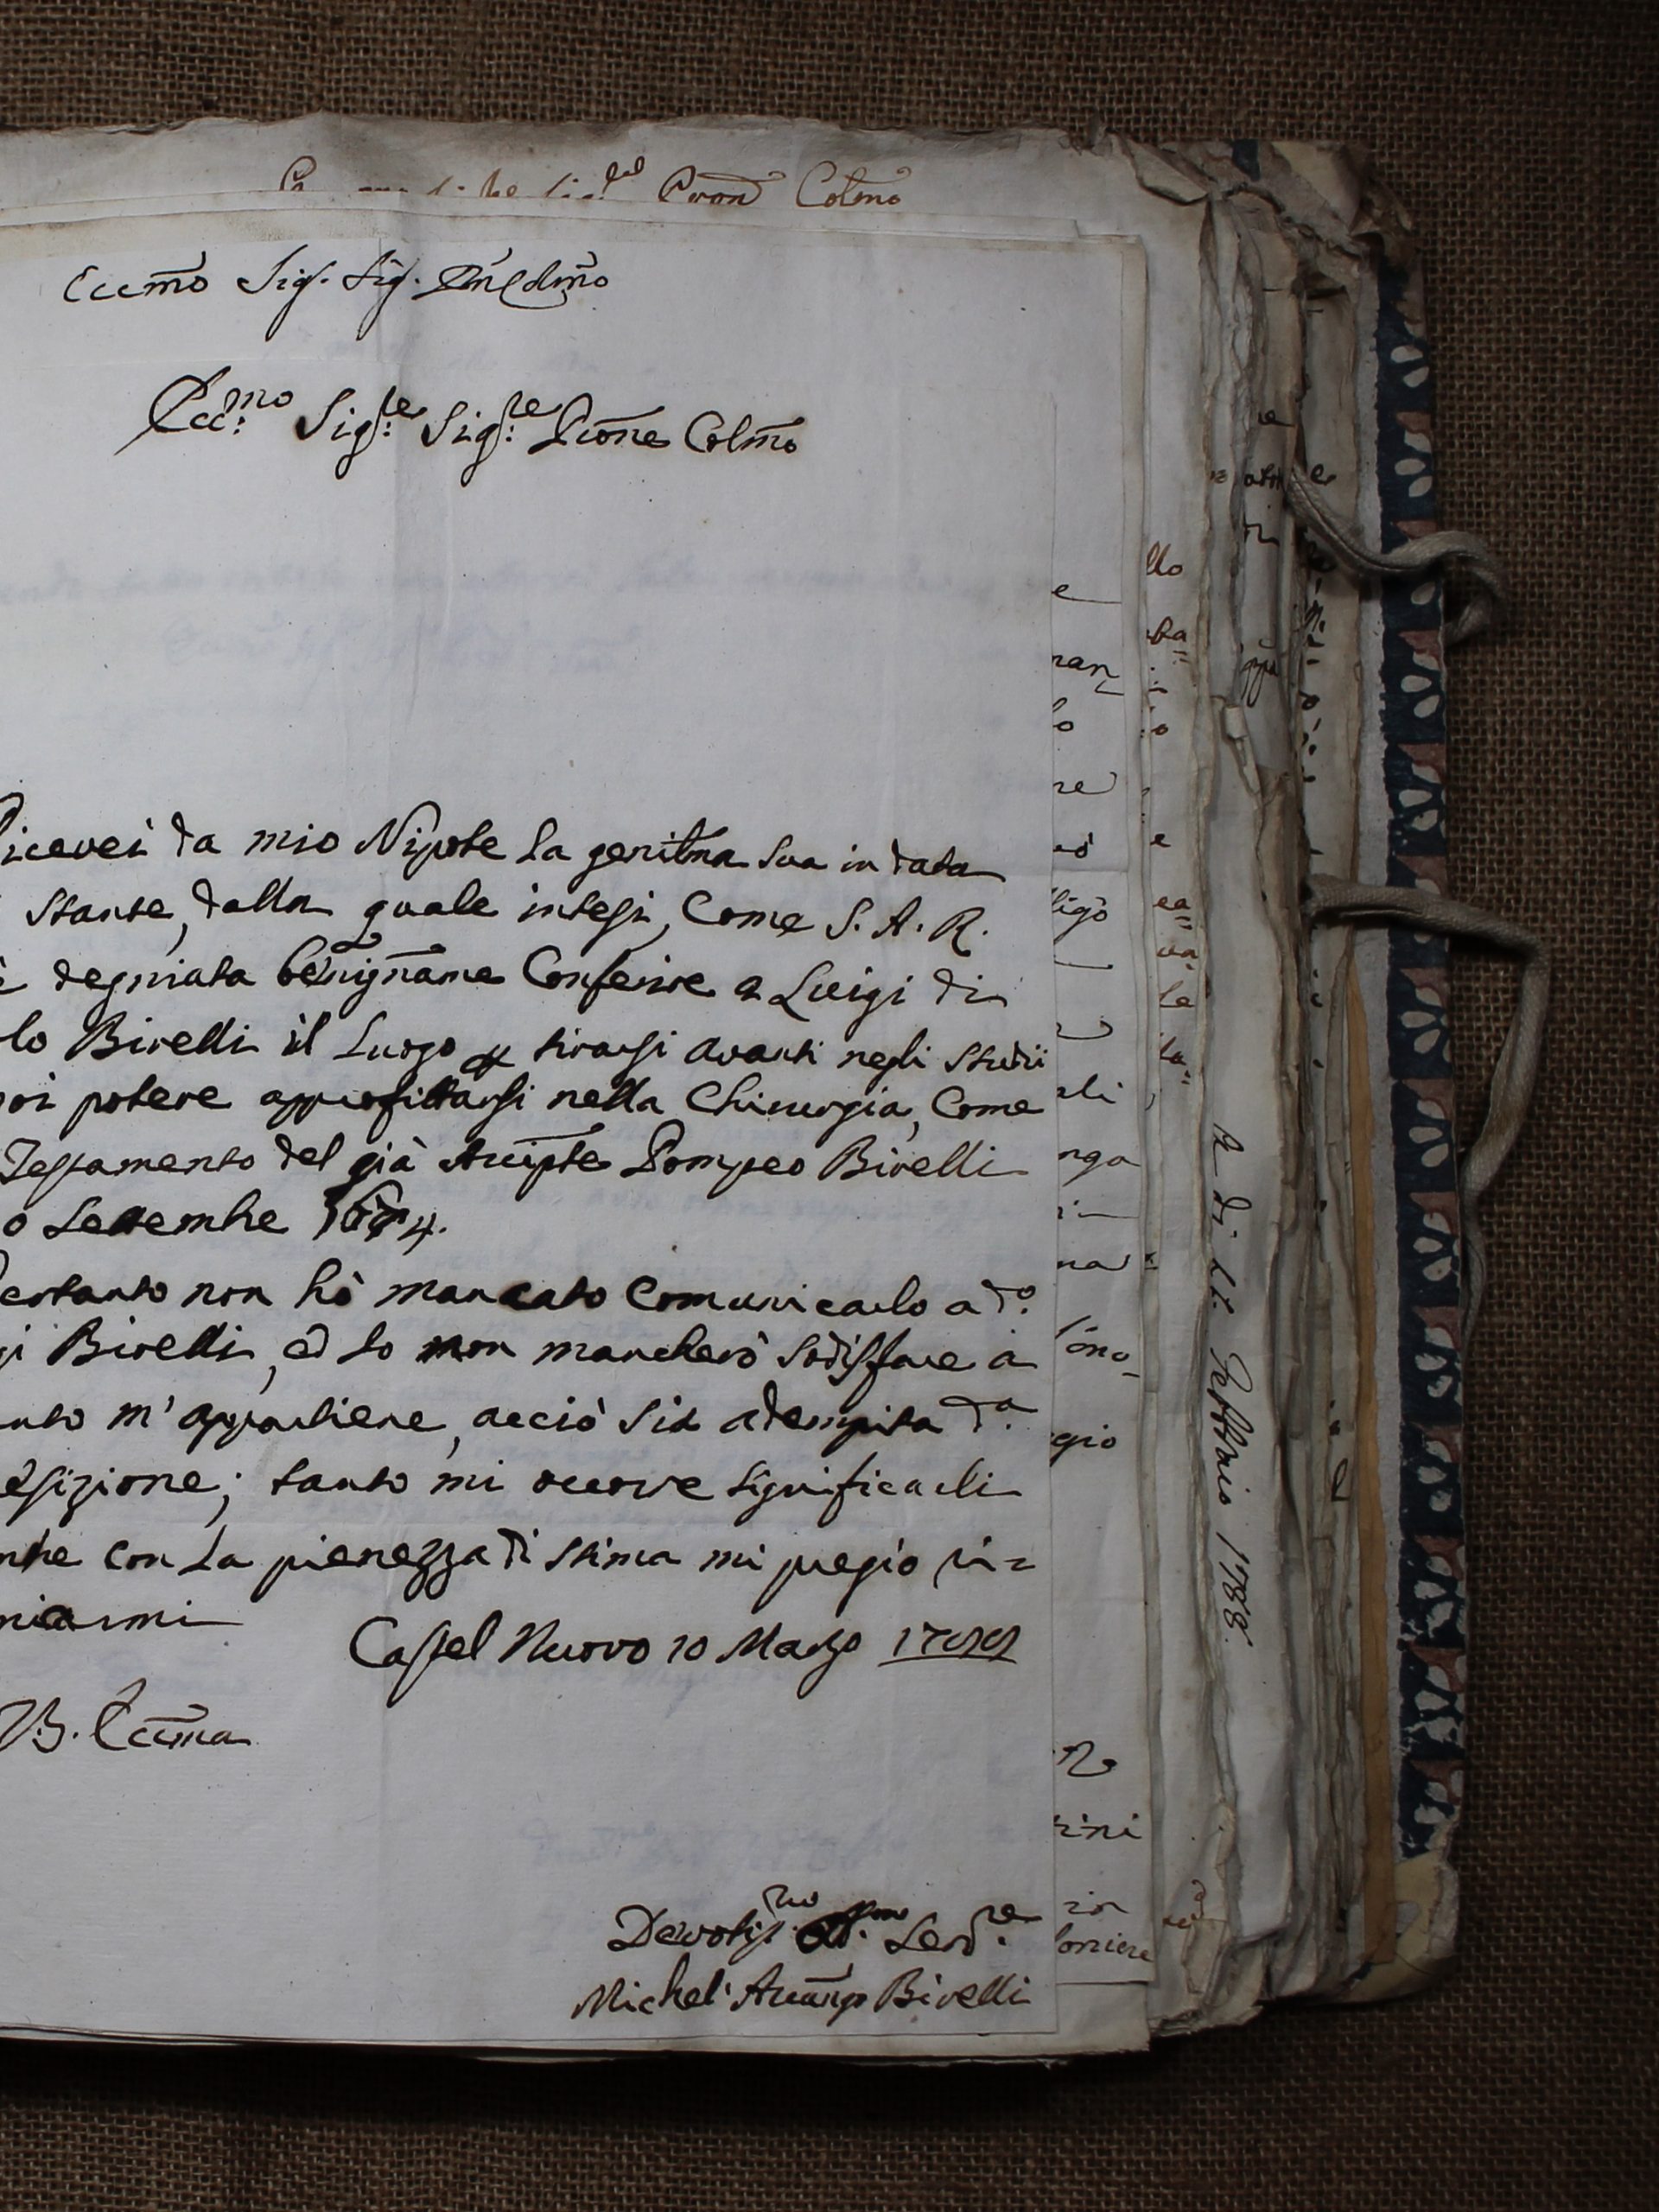 Pron Colmo
Eccmo Sig. Sig. Pne Colmo
Ecc:mo Sig:re Sig:re Prone Colmo
Ricevei da mio Nipote la gentma sua in data
stante, dalla quale intesi, come S. A. R.
è degniata benigname conferire a Luigi di
lo Birelli il Luogo p tirarsi avanti negli studii
poi potere approfittarsi nella Chirurgia, come
Testamento del già Arcipte Pompeo Birelli
o Settembre
ertanto non hò mancato comunicarlo a do
gi Birelli, ed Io non mancherò sodisfare a
nto m'appartiene, acciò sia adempita da
sizione; tanto mi occorre significarli
ntre con la pienezza di stima mi pregio ri=
niarmi
Castel Nuovo 10 Marzo 1799
V. S. Eccma
Devotis.mo Serv.re
Michel' Arcang Birelli
llo
ba=
nan
lo
re
ligò
ea=
ua
la
ta=
ali
nga
na
ono
gio
rini
A di 21. Febbraio 1788